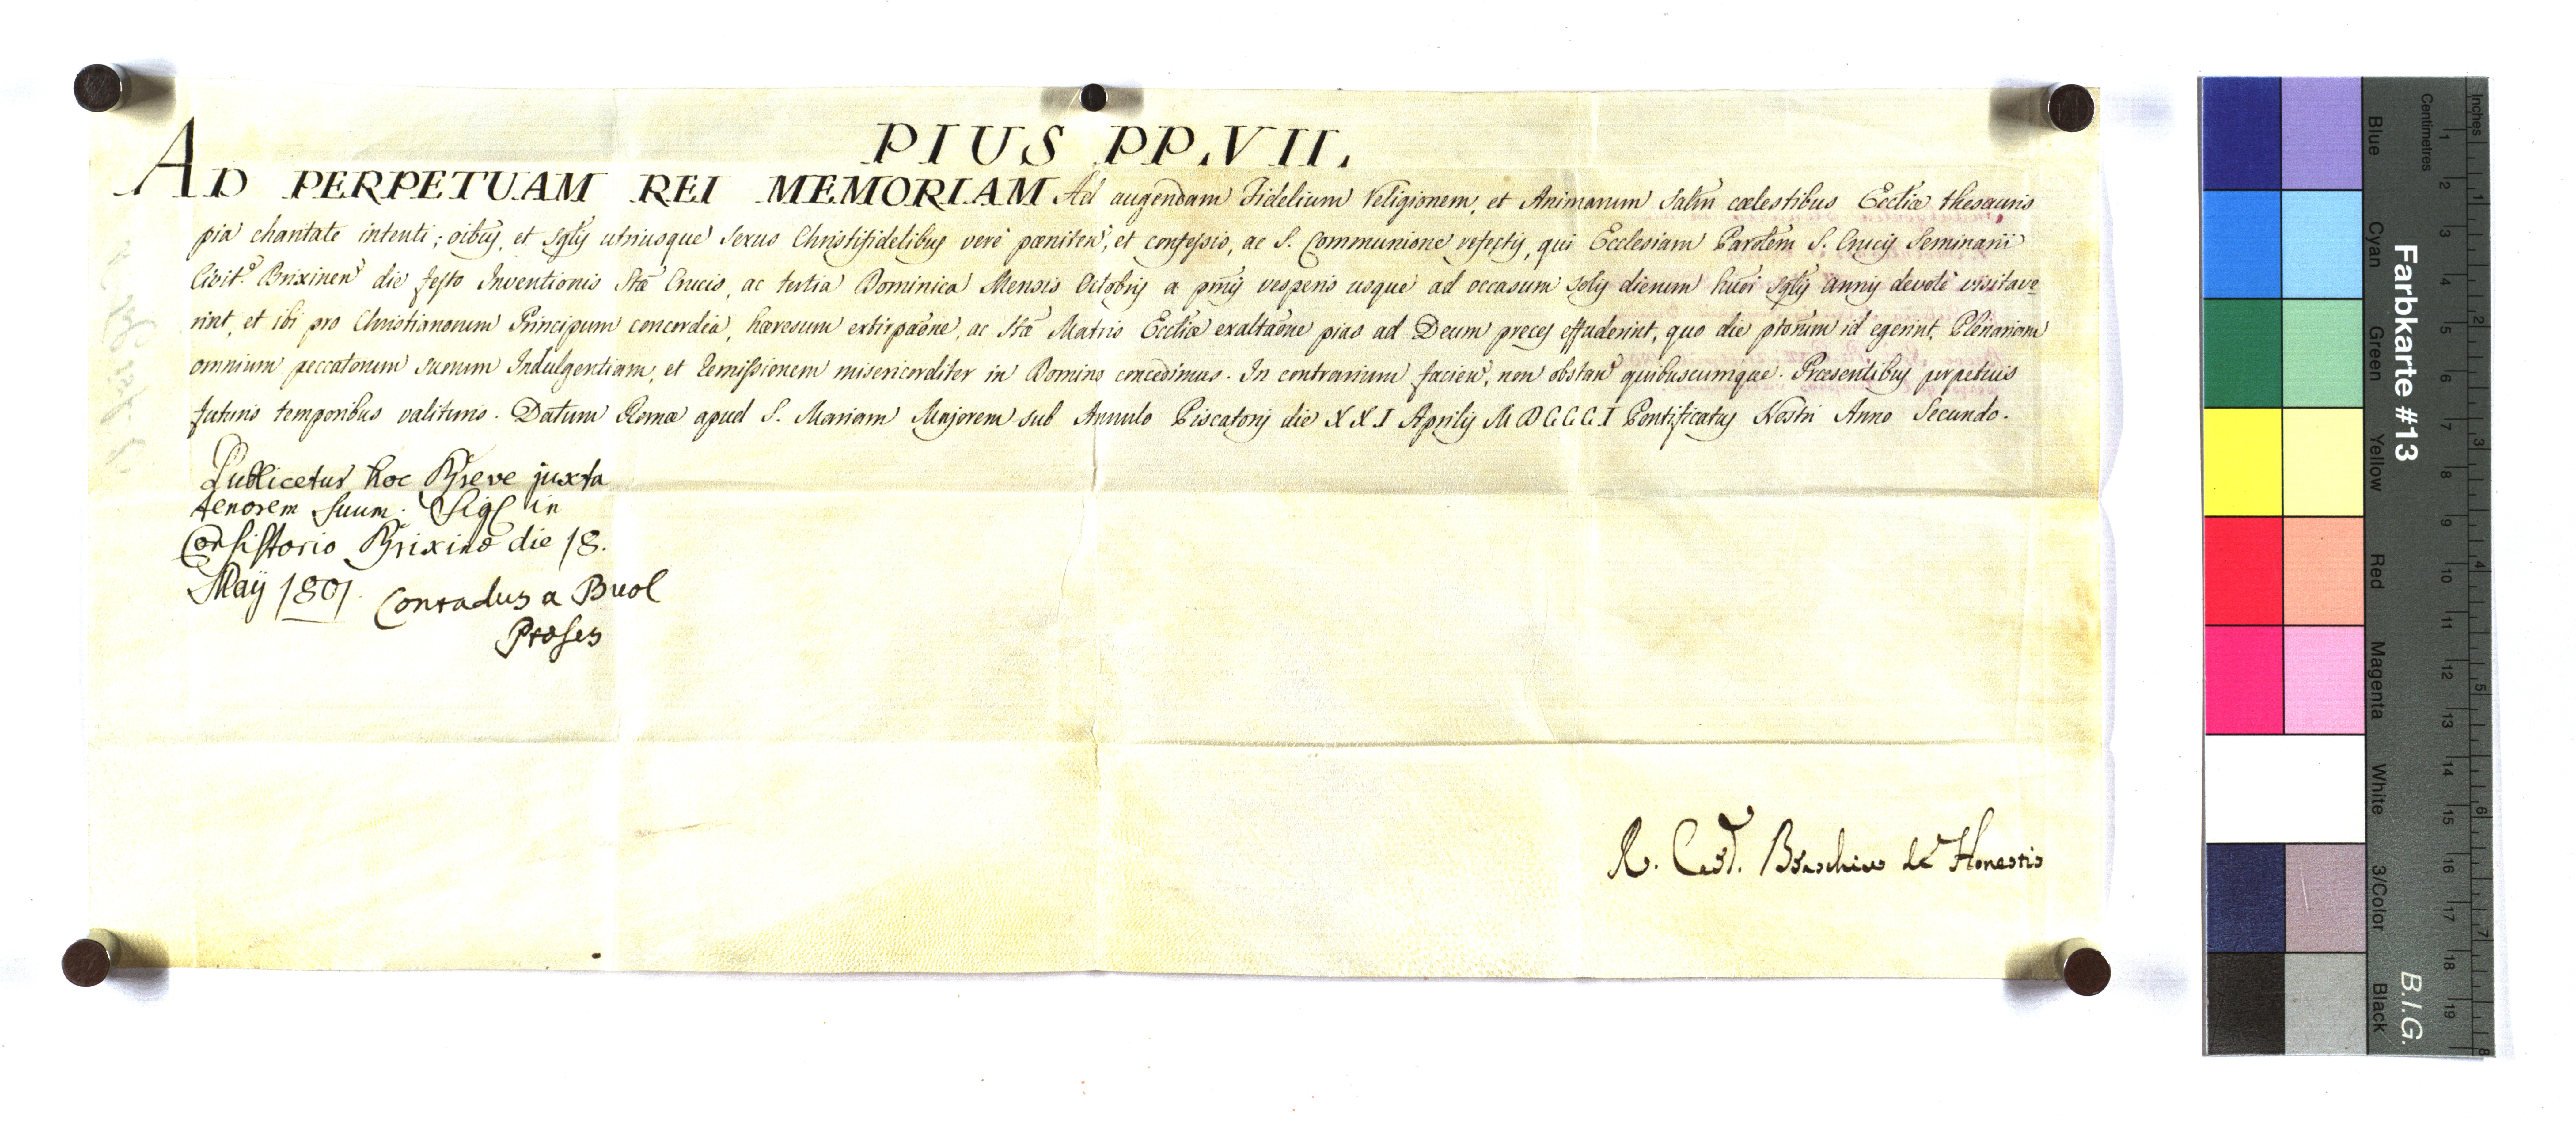 PIUS PP. VII.
AD PERPETUAM REI MEMORIAM Ad augendam Fidelium Religionem, et Animarum Salm̃ cœlestibus Eccliæ thesauris
pia charitate intenti; oibus, et sglis utriusque Sexus Christifidelibus verè pœniten, et confessis, ac S. Communione refectis, qui Ecclesiam Parolem S. Crucis Seminarii
Civit.s Brixinen die festo Inventionis Stæ Crucis, ac tertia Dominica Mensis Octobris a pmis vesperis usque ad occasum Solis dierum hmoi sglis annis devotè visitave
rint, et ibi pro Christianorum Principum concordia, hæresum extirpaõne, ac Stæ Matris Eccliæ exaltaõne pias ad Deum preces effuderint, quo die ptorum id egerint, Plenariam
omnium peccatorum suorum Indulgentiam, et remissionem misericorditer in Domino concedimus. In contrarium facien, non obstan quibuscumque. Præsentibus perpetuis
futuris temporibus valituris. Datum Romæ apud S. Mariam Majorem sub Annulo Piscatoris die XXI Aprilis MDCCCI Pontificatus Nostri Anno Secundo.
Publicetur hoc Breve juxta
tenorem suum. Sigl in
Consistorio Brixinæ die 18.
Maÿ 1801. Conradus a Buol
Præses
R. Card. Braschius de Honestis
Farbkarte #13
B.I.G.
Inches 1 2 3 4 5 6 7 8
Centimetres 1 2 3 4 5 6 7 8 9 10 11 12 13 14 15 16 17 18 19
Blue
Cyan
Green
Yellow
Red
Magenta
White
3/Color
Black